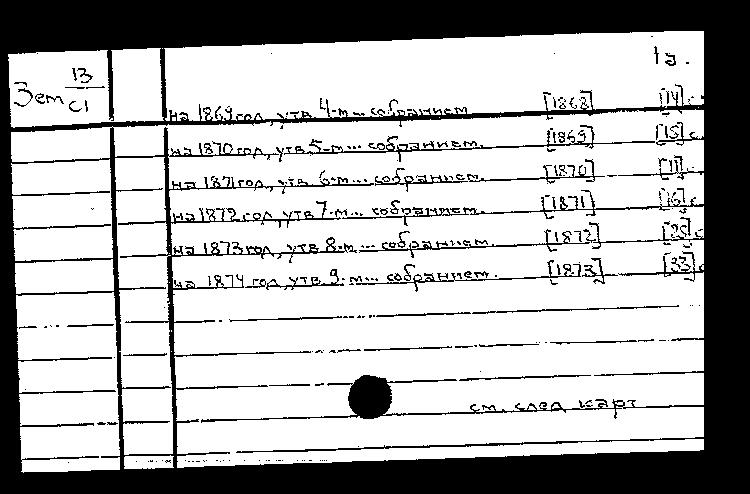 1 э.
Зем 13
С1
на 1869 год, утв. 4-м ... собранием [1868] [14] с.
на 1870 год, утв. 5-м ... собранием. [1869] [15] с
на 1871 год, утв. 6-м ... собранием. [1870] [11] с.
на 1872 год, утв. 7-м ... собранием. [1871] [16] с
на 1873 год, утв. 8-м ... собранием. [1872] [25] с
на 1874 год, утв. 9-м ... собранием. [1873] [33] с
см. след карт